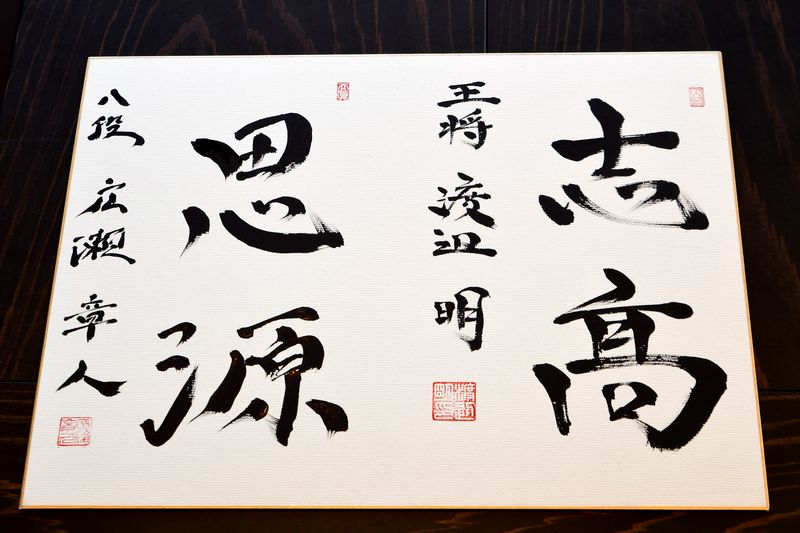 志高
王将 渡辺 明
思源
八段 広瀬 章人